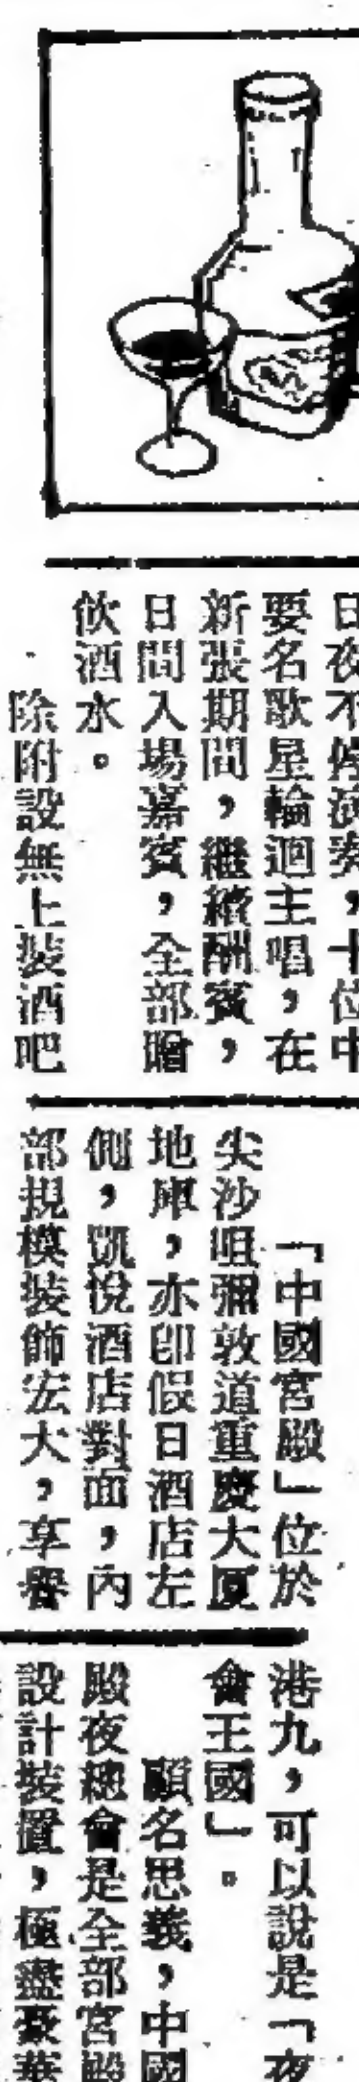 日夜不停演奏，十位中
要名歌星輪迴主唱，在
新張期間，繼續酬賓，
日間入場嘉賓，全部贈
飲酒水。
除附設無上裝酒吧
「中國宮殿」位於
尖沙咀彌敦道重慶大厦
地庫，亦即假日酒店左
側，凱悅酒店對面，內
部規模裝飾宏大，享譽
港九，可以說是「夜
會王國」。
顧名思義，中國
殿夜總會是全部宮殿
設計裝置，極盡豪華